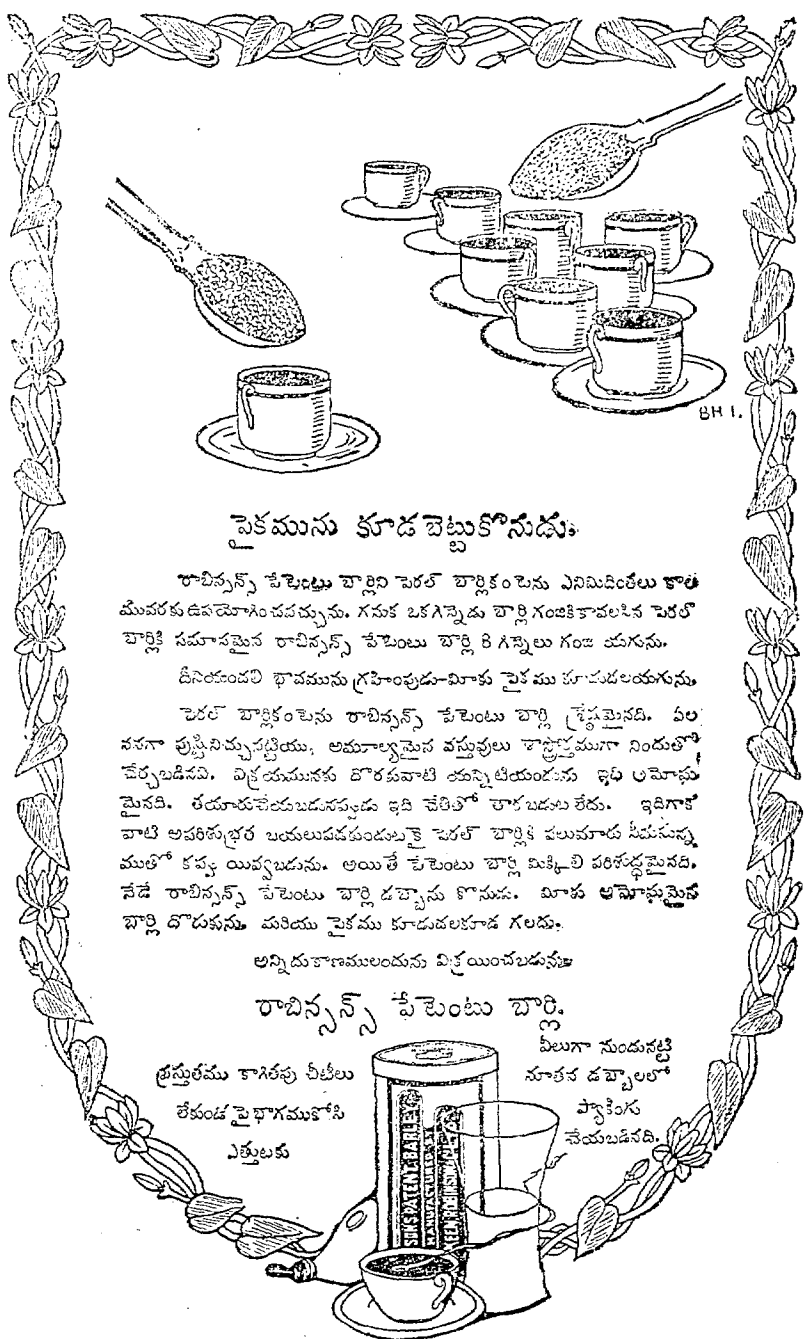 BH 1.
పైకమును కూడ బెట్టుకొనుడు:
రాబిన్సన్స్ పేటెంటు బార్లిని పెరల్ బార్లికంటెను ఎనిమిదింతలు కాల
మువరకు ఉపయోగించవచ్చును. గనుక ఒకగిన్నెడు బార్లి గంజికికావలసిన పెరల్
బార్లికి సమానమైన రాబిన్సన్స్ పేటెంటు బార్లి 8 గిన్నెలు గంజి యగును.
దీనియందలి భావమును గ్రహింపుడు-మీకు పైకము కూడుదలయగును.
పెరల్ బార్లికంటెను రాబిన్సన్స్ పేటెంటు బార్లి శ్రేష్ఠమైనది. ఏల
ననగా పుష్టినిచ్చునట్టియు, అమూల్యమైన వస్తువులు శాస్త్రోక్తముగా నిందుతో
చేర్చబడినవి. విక్రయమునకు దొరకువాటి యన్నిటియందును ఇది అమోఘ
మైనది. తయారుచేయబడునప్పుడు ఇది చేతితో తాకబడుట లేదు. ఇదిగాక
వాటి అపరిశుభ్రత బయలుపడకుండుటకై పెరల్ బార్లికి పలుమారు సీమసున్న
ముతో కప్పు యివ్వబడును. అయితే పేటెంటు బార్లి మిక్కిలి పరిశుద్ధమైనది.
నేడే రాబిన్సన్స్ పేటెంటు బార్లి డబ్బాను కొనుడు. మీకు అమోఘమైన
బార్లి దొరుకును. మరియు పైకము కూడుదలకూడ గలదు.
అన్ని దుకాణములందును విక్రయించబడును
రాబిన్సన్స్ పేటెంటు బార్లి
ప్రస్తుతము కాగితపు చీటీలు
లేకుండ పై భాగముకోసి
ఎత్తుటకు
వీలుగా నుండునట్టి
నూతన డబ్బాలలో
ప్యాకింగు
చేయబడినది.
SONS PATENT BARLE
MANUFACTURED
KEEN ROBINSON